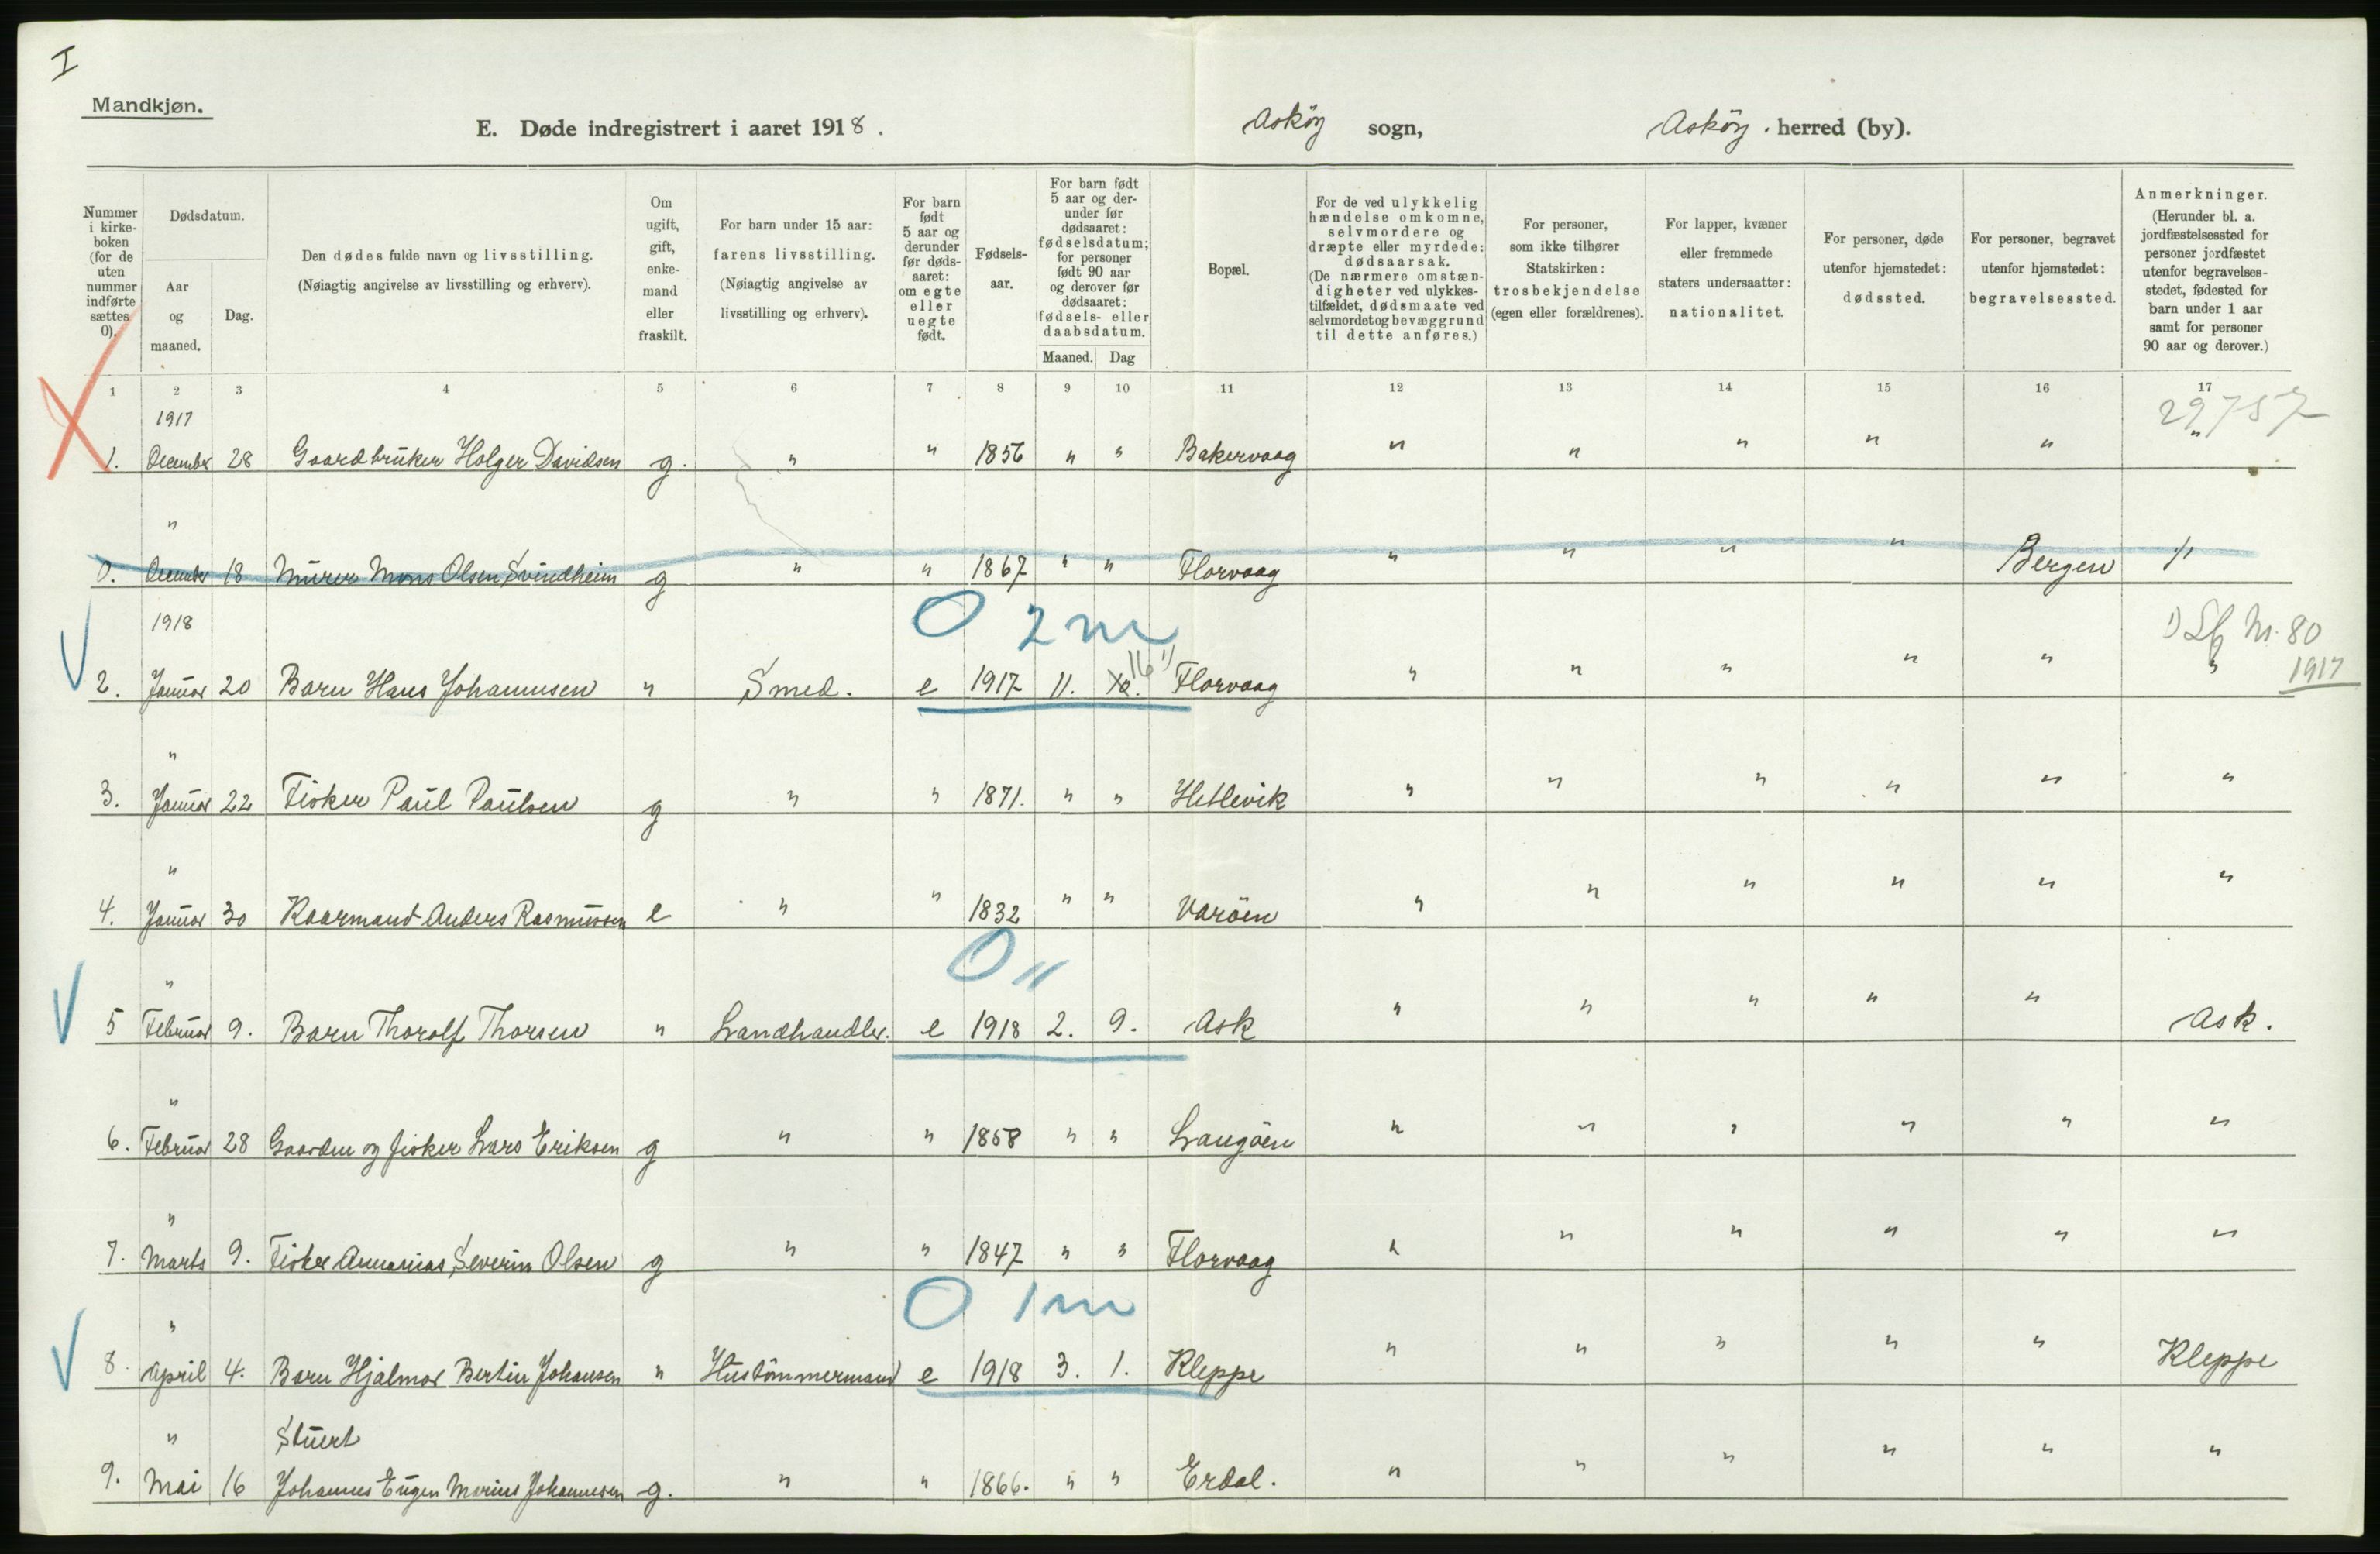 I
Mandkjøn.
E. Døde indregistrert i aaret 1918. Askøy sogn, Askøy. herred (by).
Nummer i kirke- boken (for de uten nummer indførte sættes 0).
Dødsdatum.
Aar og maaned.
Dag.
Den dødes fulde navn og livsstilling.
(Nøiagtig angivelse av livsstilling og erhverv).
Om ugift, gift, enke- mand eller fraskilt.
For barn under 15 aar: farens livsstilling.
(Nøiagtig angivelse av livsstilling og erhverv).
For barn født 5 aar og derunder før døds- aaret: om egte eller uegte født.
Fødsels- aar.
For barn født 5 aar og der- under før dødsaaret: fødselsdatum; for personer født 90 aar og derover før dødsaaret: fødsels- eller daabsdatum.
Maaned. Dag
Bopæl.
For de ved ulykkelig hændelse omkomne, selvmordere og dræpte eller myrdede: dødsaarsak.
(De nærmere omstæn- digheter ved ulykkes- tilfældet, dødsmaate ved selvmordet og bevæggrund til dette anføres.)
For personer, som ikke tilhører Statskirken: trosbekjendelse (egen eller forældrenes).
For lapper, kvæner eller fremmede staters undersaatter: nationalitet.
For personer, døde utenfor hjemstedet: dødssted.
For personer, begravet utenfor hjemstedet: begravelsessted.
Anmerkninger.
(Herunder bl. a. jordfæstelsessted for personer jordfæstet utenfor begravelses- stedet, fødested for barn under 1 aar samt for personer 90 aar og derover.)
1 2 3 4 5 6 7 8 9 10 11 12 13 14 15 16 17
1917 29757
1. December 28 Gaardbruker Holger Davidsen g. " " 1856 " " Bakervaag " " " " " "
"
0. December 18 Murer Mons Olsen Svindheim g " " 1867 " " Florvaag " " " " Bergen "
1918 0 2 m 1) Lf Nr. 80
2. Januar 20 Barn Hans Johannesen " Smed. e 1917 11. 10. 16 1) Florvaag " " " " " " 1917
"
3. Januar 22 Fisker Paul Paulsen g " " 1871. " " Hetlevik " " " " " "
"
4. Januar 30 Kaarmand Anders Rasmussen e " " 1832 " " Varöen " " " " " "
" 0 "
5 Februar 9. Barn Thorolf Thorsen " Landhandler. e 1918 2. 9. Ask " " " " " Ask.
"
6. Februar 28 Gaardm og fisker Lars Eriksen g " " 1858 " " Langöen " " " " " "
"
7. Marts 9. Fisker Annanias Severin Olsen g " " 1847 " " Florvaag " " " " " "
" 0 1 m
8. April 4. Barn Hjalmar Bertin Johansen " Hustömmermand e 1918 3. 1. Kleppe " " " " " Kleppe
" Stuert
9. Mai 16 Johannes Eugen Marius Johannesen g. " " 1866. " " Erdal. " " " " " "